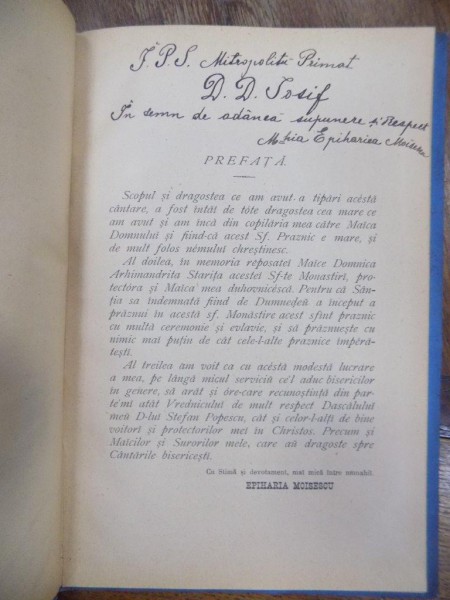 Î. P. S. Mitropolit Primat
D. D. Iosif
În semn de adâncă supunere și Respect
M-hia Epiharia Moisescu
PREFAȚĂ
Scopul și dragostea ce am avut a tipări acéstă
cântare, a fost întât de tóte dragostea cea mare ce
am avut și am încă din copilăria mea către Maica
Domnului și fiind-că acest Sf. Praznic e mare, și
de mult folos némului chreștinesc.
Al doilea, în memoria reposatei Maice Domnica
Arhimandrita Starița acestei Sf-te Monastiri, pro-
tectóra și Maica mea duhovnicéscă. Pentru că Sân-
ția sa îndemnată fiind de Dumneḑeŭ a început a
prăznui în acestă sf. Monăstire acest sfint praznic
cu multă ceremonie și evlavie, și să prăznuește cu
nimic mai puțin de cât cele-l-alte praznice împĕră-
tești.
Al treilea am voit ca cu acéstă modestă lucrare
a mea, pe lângă micul serviciŭ ce'l aduc bisericilor
în genere, să arăt și óre-care recunoștință din par-
te'mi atât Vrednicului de mult respect Dascălului
meŭ D-lui Stefan Popescu, cât și celor-l'alți de bine
voitori și protectorilor mei în Christos. Precum și
Maicilor și Surorilor mele, care aŭ dragoste spre
Cântările bisericești.
Cu Stimă și devotament, mai mică între monahii.
EPIHARIA MOISESCU